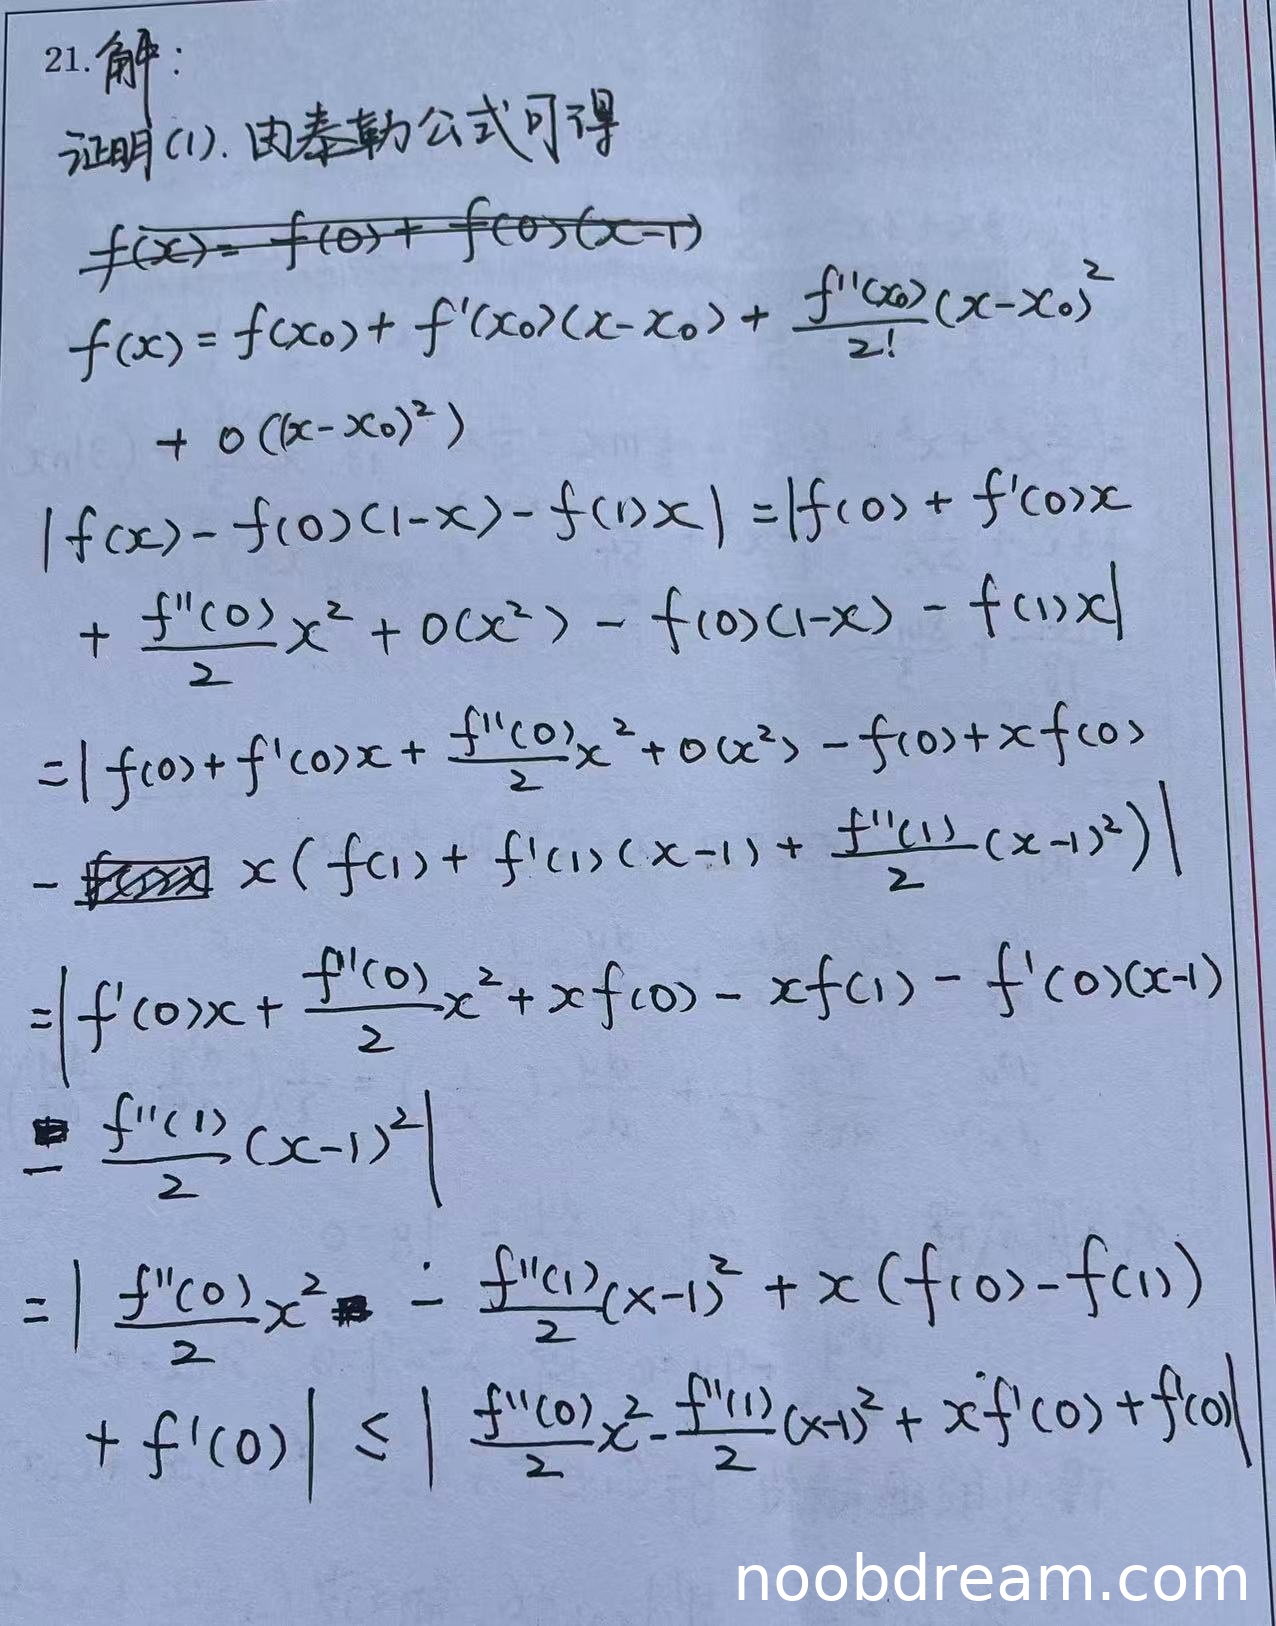 21. 解:
证明(1). 由泰勒公式可得
f(x) = f(0) + f(0)(x-1)
f(x) = f(x₀) + f'(x₀)(x-x₀) + \frac{f''(x₀)}{2!}(x-x₀)²
+ o((x-x₀)²)
|f(x) - f(0)(1-x) - f(1)x| = |f(0) + f'(0)x
+ \frac{f''(0)}{2}x² + o(x²) - f(0)(1-x) - f(1)x|
= |f(0) + f'(0)x + \frac{f''(0)}{2}x² + o(x²) - f(0) + xf(0)
- x(f(1) + f'(1)(x-1) + \frac{f''(1)}{2}(x-1)²)|
= |f'(0)x + \frac{f''(0)}{2}x² + xf(0) - xf(1) - f'(0)(x-1)
- \frac{f''(1)}{2}(x-1)²|
= |\frac{f''(0)}{2}x² - \frac{f''(1)}{2}(x-1)² + x(f(0) - f(1))
+ f'(0)| ≤ |\frac{f''(0)}{2}x² - \frac{f''(1)}{2}(x-1)² + xf'(0) + f'(0)|
noobdream.com